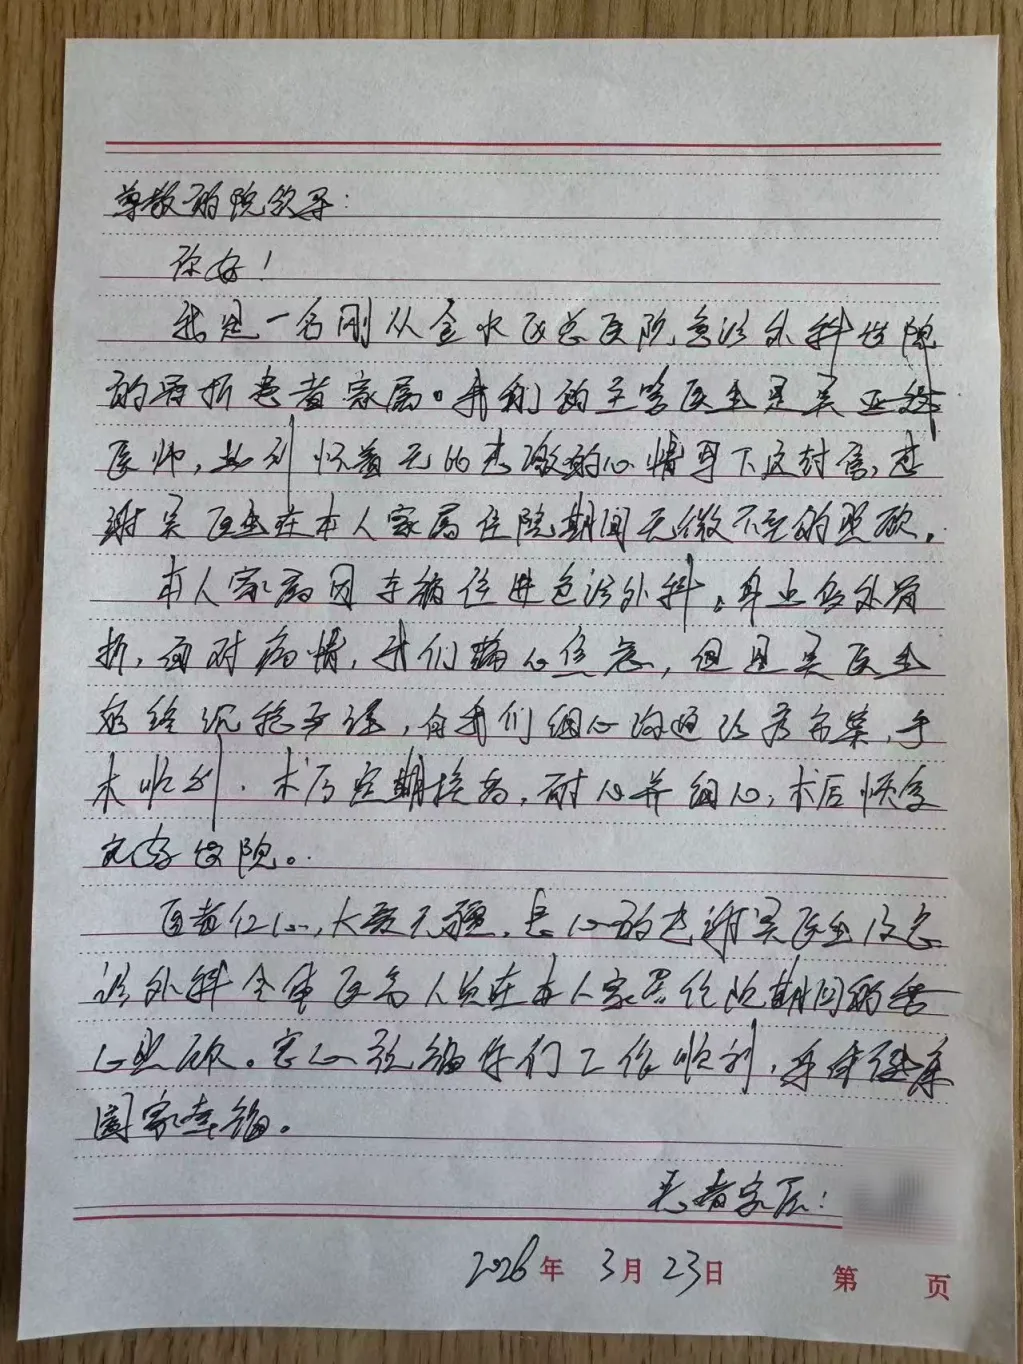 尊敬的院领导：
你好！
我是一名刚从金水区总医院急诊外科住院
的骨折患者家属。我们的主管医生是吴亚
医师，此刻怀着无比感激的心情写下这封信，感
谢吴医生在本人家属住院期间无微不至的照顾。
本人家属因车祸住进急诊外科，身上多处骨
折，面对病情，我们满心焦急，但是吴医生
始终沉稳，向我们细心沟通治疗方案，手
术顺利．术后定期换药，耐心并细心，术后恢复
良好出院。
医者仁心，大爱无疆，衷心的感谢吴医生及急
诊外科全体医务人员在本人家属住院期间的悉
心照顾。衷心祝福你们工作顺利，身体健康
阖家幸福。
患者家属：
2026年 3月 23日
第 页